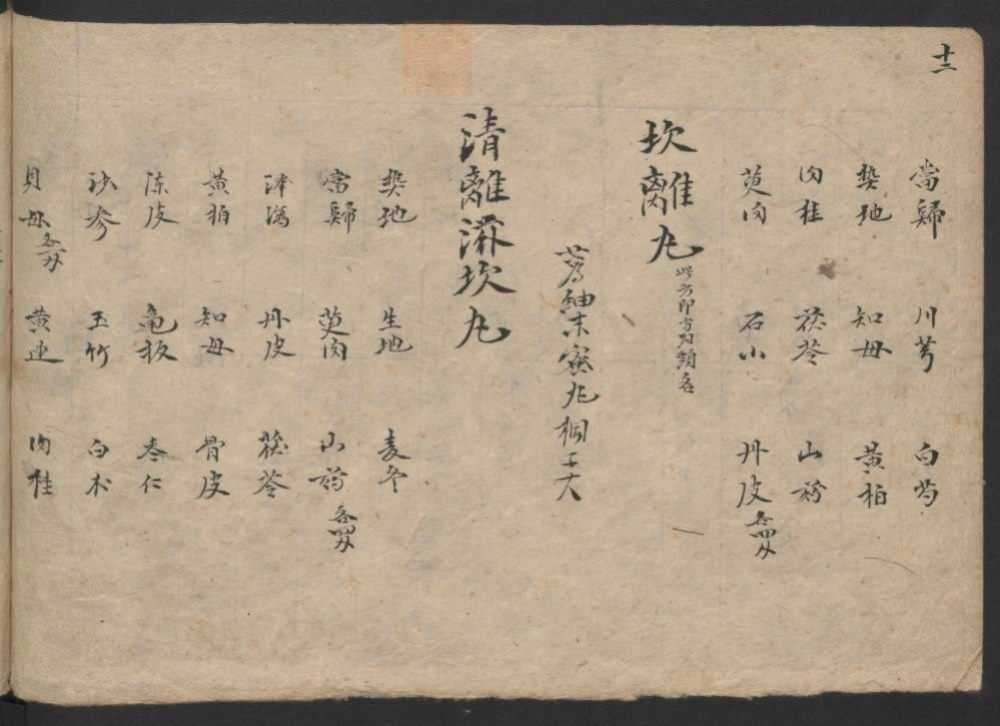 十三
當歸 川芎 白芍
熟地 知母 黃柏
肉桂 茯苓 山药
萸肉 石小 丹皮 各四分
坎離丸
此方即
為細末蜜丸桐子大
清離滋坎丸
熟地 生地 麦冬
當歸 萸肉 山药 各四分
泽瀉 丹皮 茯苓
黄柏 知母 骨皮
陈皮 龟板 枣仁
沙参 玉竹 白术
貝母 黄連 肉桂